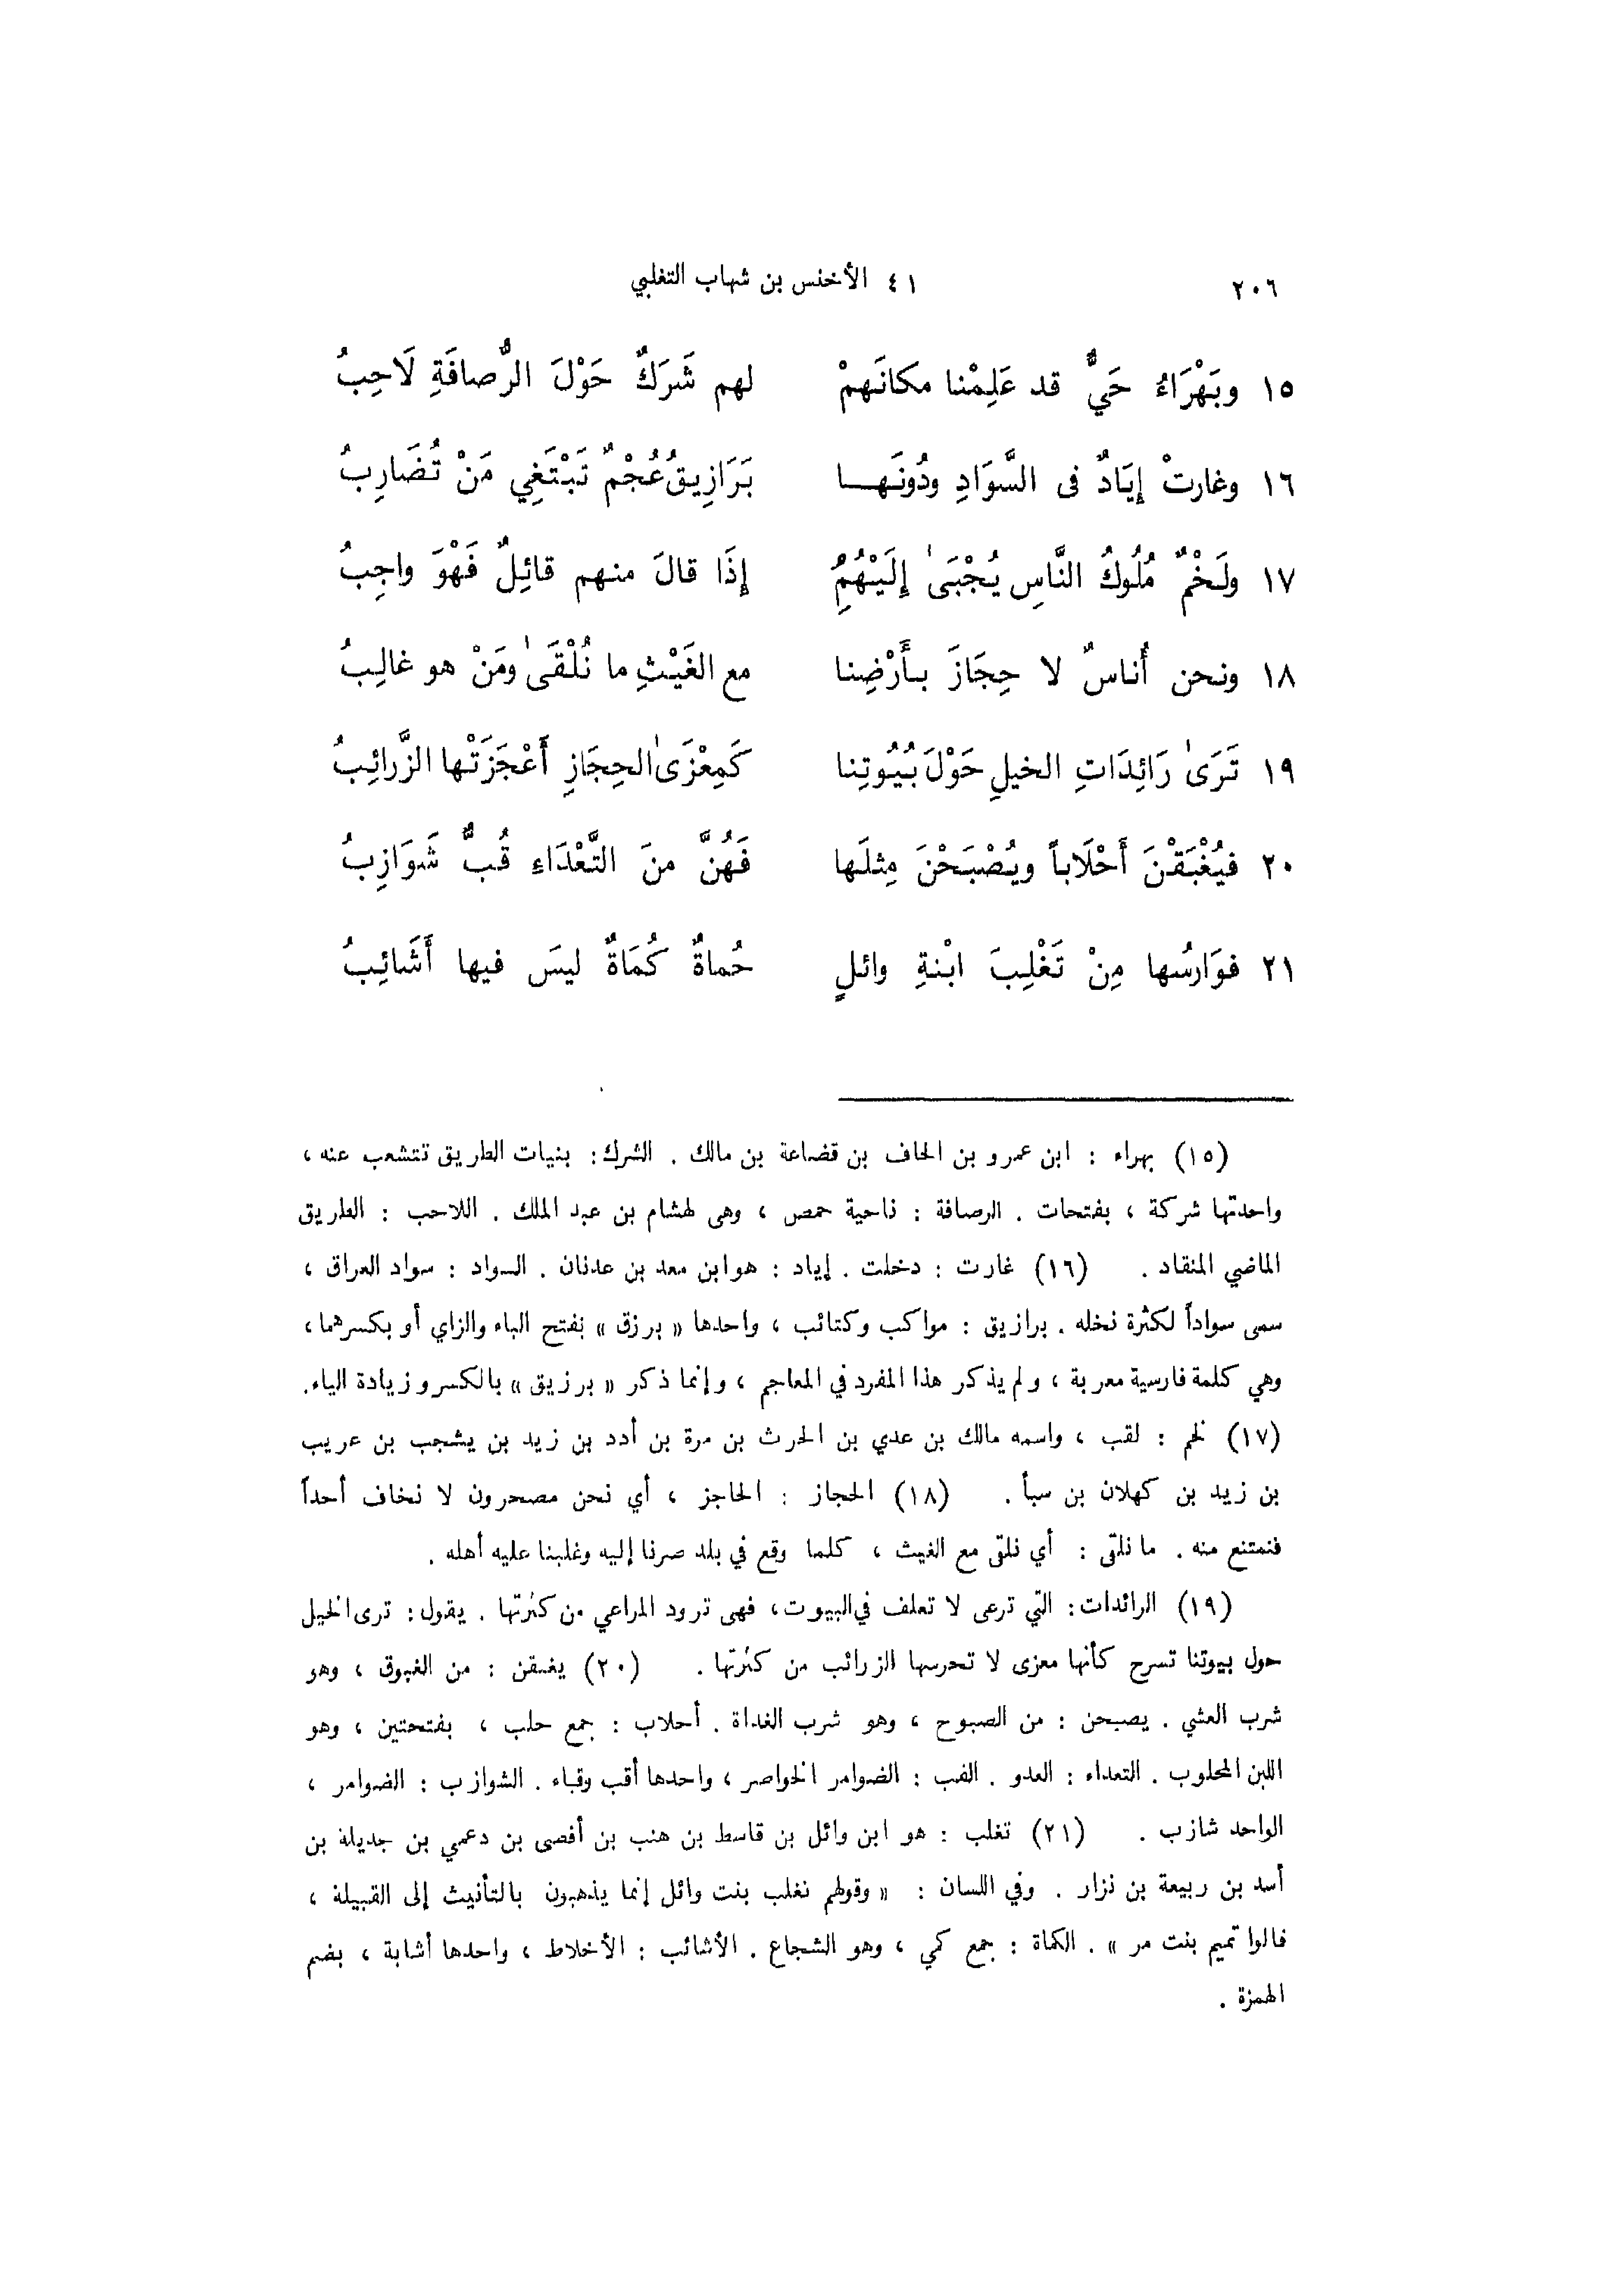 ٢٠٦ ٤١ الأخنس بن شهاب التغلبي
١٥ وبَهْرَاءُ حَيٌّ قد عَلِمْنا مكانَهمْ لهم شَرَكٌ حَوْلَ الرُّصافَةِ لَاحِبُ
١٦ وغارتْ إِيَادٌ فى السَّوَادِ ودُونَهـا بَرَازِيقُ عُجْمٌ تَبْتَغِي مَنْ تُضَارِبُ
١٧ ولَخْمٌ مُلُوكُ النَّاسِ يُجْبَىٰ إِلَيْهُمُ إِذَا قالَ منهم قائِلٌ فَهْوَ واجِبُ
١٨ ونحن أُناسٌ لا حِجَازَ بأَرْضِنا مع الغَيْثِ ما نُلْقَىٰ ومَنْ هو غالِبُ
١٩ تَرَىٰ رَائِدَاتِ الخيلِ حَوْلَ بُيُوتِنا كَمِعْزَىٰ الحِجَازِ أَعْجَزَتْها الزَّرائِبُ
٢٠ فيُغْبَقْنَ أَحْلَاباً ويُصْبَحْنَ مِثلَها فَهُنَّ منَ التَّعْدَاءِ قُبٌّ شَوَازِبُ
٢١ فوَارسُها مِنْ تَغْلِبَ ابْنةِ وائلٍ حُماةٌ كُمَاةٌ ليسَ فيها أَشَائِبُ
(١٥) بهراء : ابن عمرو بن الحاف بن قضاعة بن مالك . الشرك : بنيات الطريق تتشعب عنه ،
واحدتها شركة ، بفتحات . الرصافة : ناحية حمص ، وهى لهشام بن عبد الملك . اللاحب : الطريق
الماضي المنقاد . (١٦) غارت : دخلت . إياد : هو ابن معد بن عدنان . السواد : سواد العراق ،
سمى سواداً لكثرة نخله . برازيق : مواكب وكتائب ، واحدها « برزق » بفتح الباء والزاي أو بكسرهما ،
وهي كلمة فارسية معربة ، ولم يذكر هذا المفرد في المعاجم ، وإنما ذكر « برزيق » بالكسر وزيادة الياء .
(١٧) لخم : لقب ، واسمه مالك بن عدي بن الحرث بن مرة بن أدد بن زيد بن يشجب بن عريب
بن زيد بن كهلان بن سبأ . (١٨) الحجاز : الحاجز ، أي نحن مصحرون لا نخاف أحداً
فنمتنع منه . ما نلقى : أي نلقى مع الغيث ، كلما وقع في بلد صرنا إليه وغلبنا عليه أهله .
(١٩) الرائدات : التي ترعى لا تعلف في البيوت ، فهى ترود المراعي من كثرتها . يقول : ترى الخيل
حول بيوتنا تسرح كأنها معزى لا تحرسها الزرائب من كثرتها . (٢٠) يغبقن : من الغبوق ، وهو
شرب العشي . يصبحن : من الصبوح ، وهو شرب الغداة . أحلاب : جمع حلب ، بفتحتين ، وهو
اللبن المحلوب . التعداء : العدو . القب : الضوامر الخواصر ، واحدها أقب وقباء . الشوازب : الضوامر ،
الواحد شازب . (٢١) تغلب : هو ابن وائل بن قاسط بن هنب بن أفصى بن دعمي بن جديلة بن
أسد بن ربيعة بن نزار . وفي اللسان : « وقولهم تغلب بنت وائل إنما يذهبون بالتأنيث إلى القبيلة ،
قالوا تميم بنت مر » . الكماة : جمع كمي ، وهو الشجاع . الأشائب : الأخلاط ، واحدها أشابة ، بضم
الهمزة .